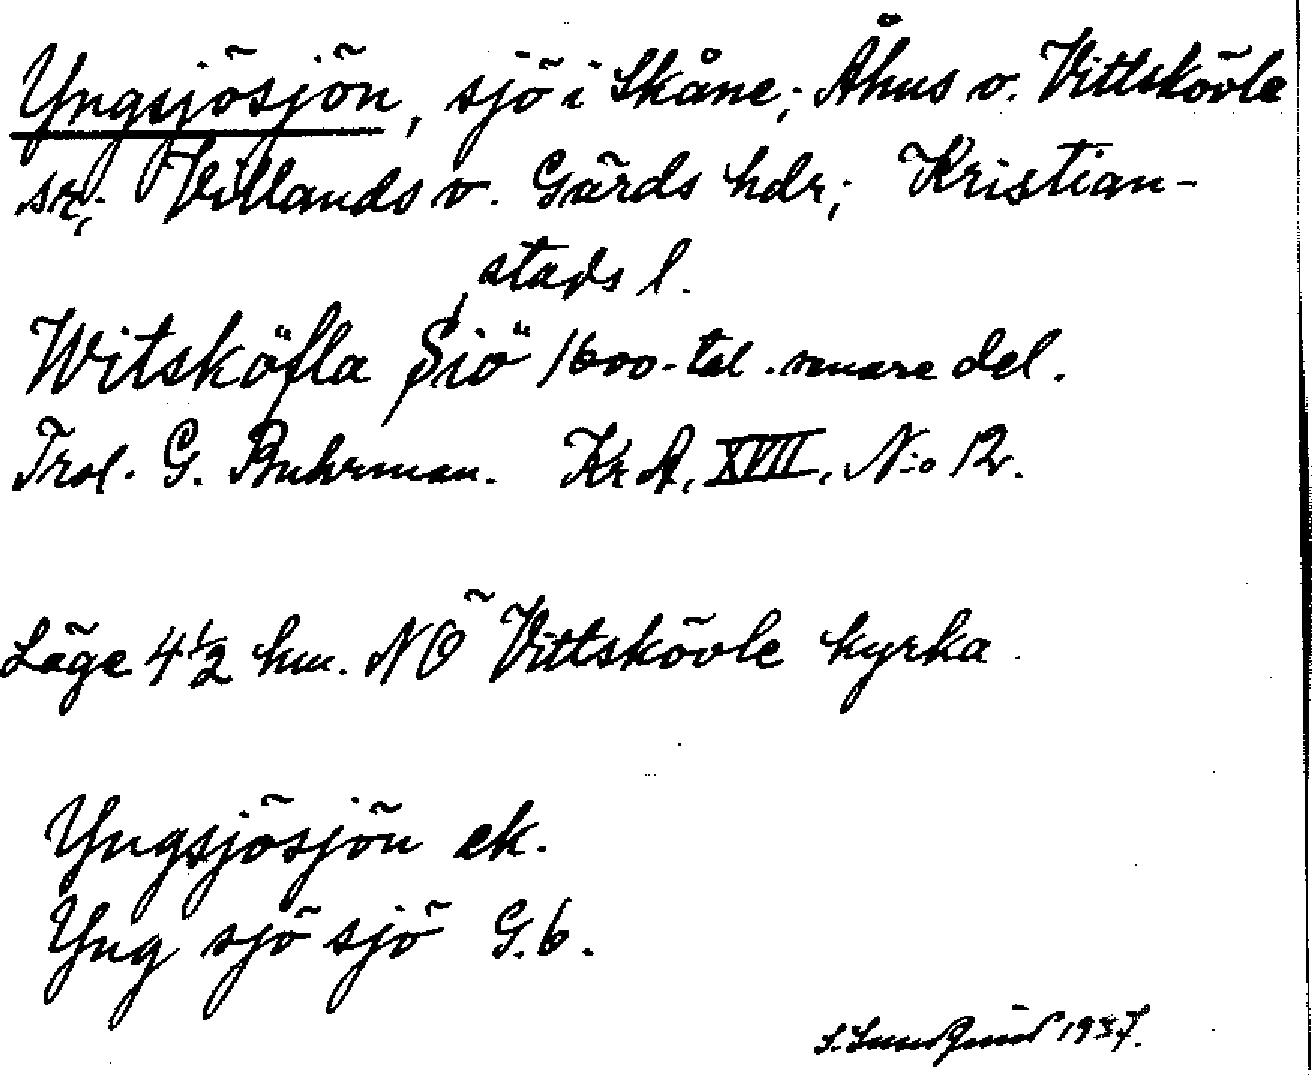 Yngsjösjön, sjö i Skåne; Åhus o. Vittskövle
sr; Villands o. Gärds hdr; Kristian-
stads l.
Witsköfla Siö 1600-tal. senare del.
Trol. G. Buhrman. Kr A, XVII, N:o 12.
Läge 4 1/2 km. NO Vittskövle kyrka.
Yngsjösjön ek.
Yng sjö sjö G.6.
1937.